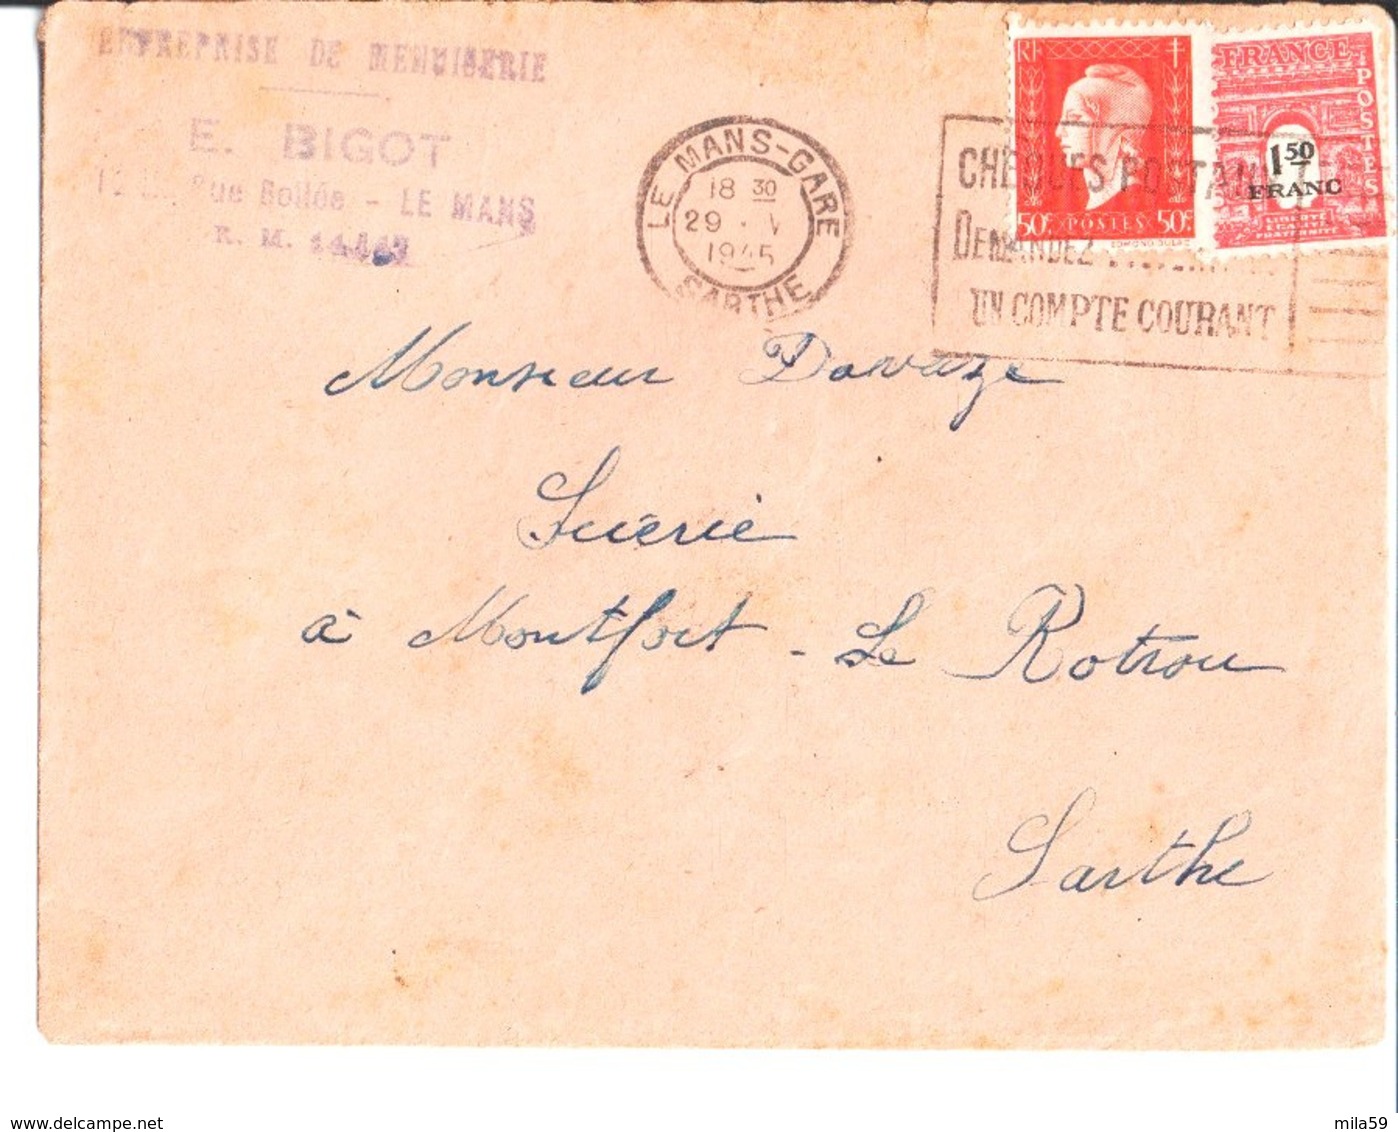 ENTREPRISE DE MENUISERIE
E. BIGOT
Rue Bollée - LE MANS
R. M.
LE MANS-GARE
18 30
29 · V
1945
SARTHE
CHEQUES POSTAUX
DEMANDEZ
UN COMPTE COURANT
RF
50c POSTES 50c
EDMOND DULAC
FRANCE
POSTES
1 50
FRANC
LIBERTÉ
EGALITÉ
FRATERNITÉ
Monsieur Davaze
Scierie
à Montfort - Le Rotrou
Sarthe
www.delcampe.net
mila59